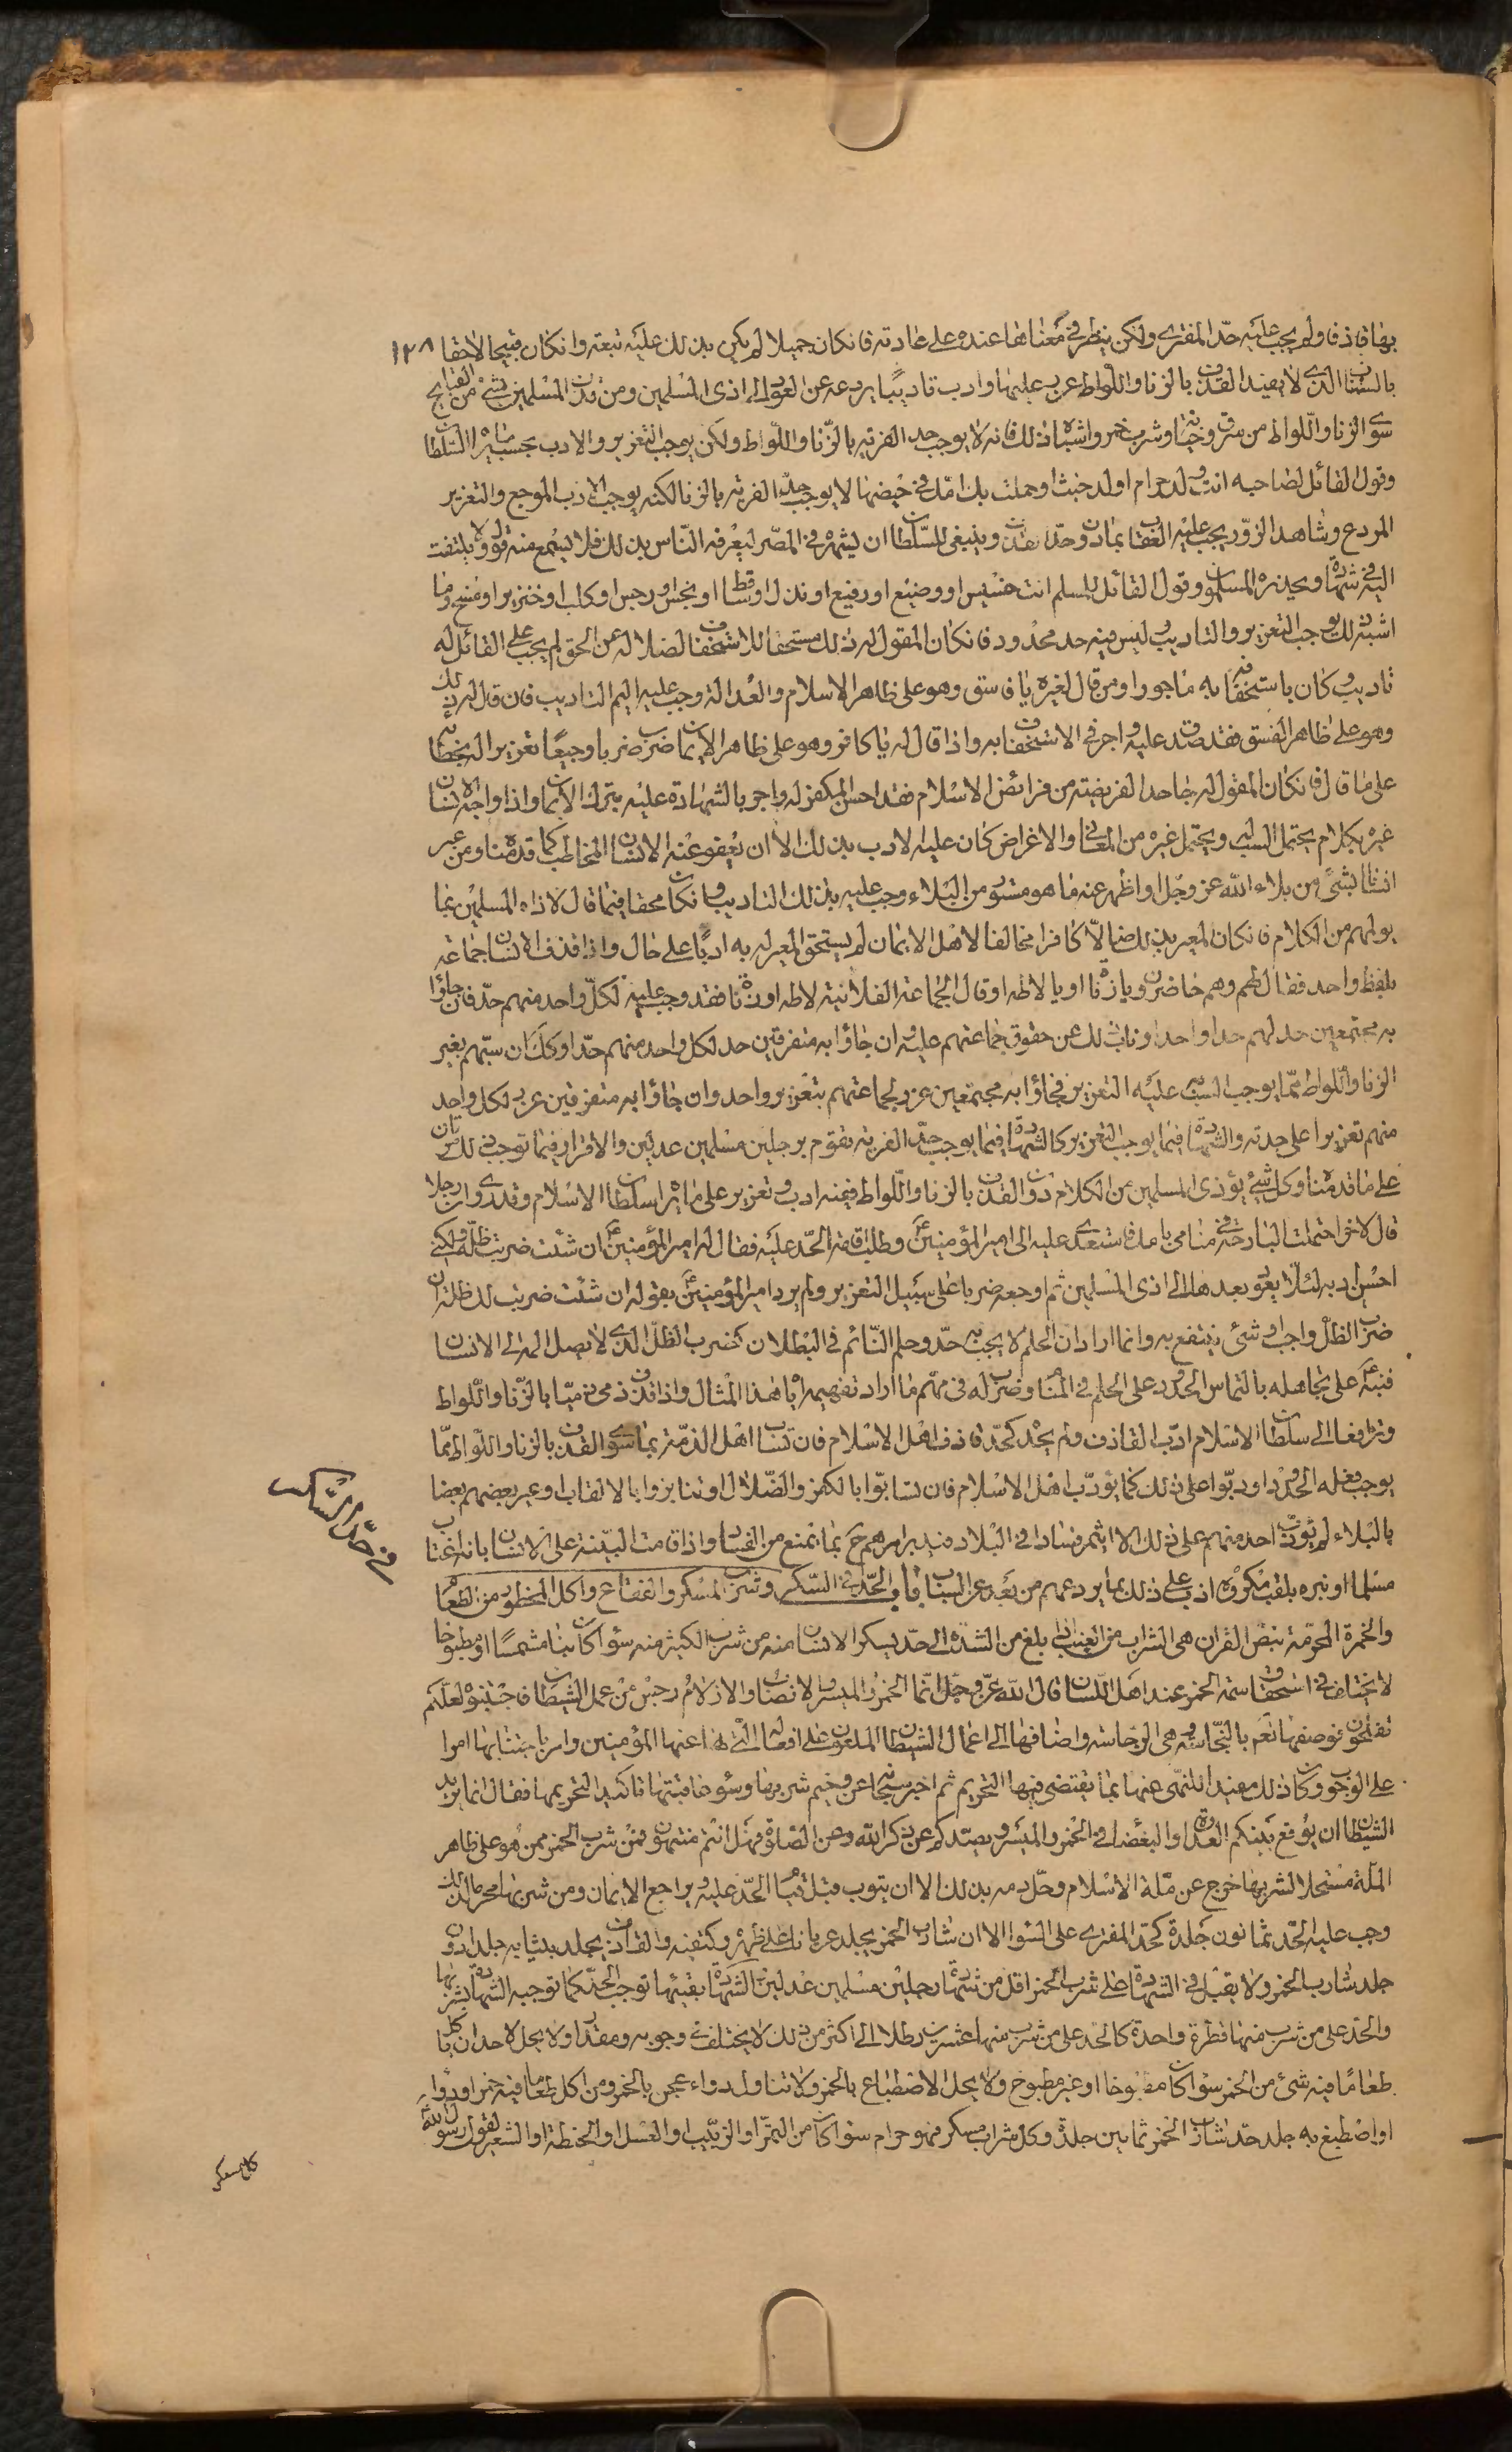 بها قاذفا ولم يجب عليه حدّ المفترى ولكن ينظر فى معناها عنده على عادته فانكان جميلا لم يكن بذلك عليه تبعة وانكان قبيحا لاحقا ١٢٨
بالسباب الذى لا يفيد القذف بالزنا واللواط عزب عليها وادب تاديبا يردعه عن العود الى اذى المسلمين ومن قذف المسلمين بشئ من القبايح
سوى الزنا واللواط من سرق وخيانة وشرب خمر واشباه ذلك فانه لا يوجب حد الفرية بالزنا واللواط ولكن يوجب التعزير والادب بحسب ما يراه السلطان
وقول القائل لصاحبه انت ولد حرام او ولد خبث او حملت بك امّك فى حيضها لا يوجب حدّ الفرية بالزنا لكنه يوجب الادب الموجع والتعزير
المردع وشاهد الزور يجب عليه العقاب بما دون حدّ القذف وينبغى للسلطان ان يشهره فى المصر ليعرفه الناس بذلك فلا يسمع منه قول ولا يلتفت
اليه فى شهادة ويحذره المسلمون وقول القائل للمسلم انت خسيس او وضيع او رقيع او نذل او ساقط او نجس او رجس او كلب او خنزير او مسخ وما
اشبه ذلك يوجب التعزير والتاديب وليس فيه حد محدود فانكان المقول له ذلك مستحقا للاستخفاف لضلاله عن الحق لم يجب على القائل له
تاديب وكان باستخفافه به ماجورا ومن قال لغيره يا فاسق وهو على ظاهر الاسلام والعدالة وجب عليه اليم التاديب فان قال له ذلك
وهو على ظاهر الفسق فقد صدق عليه واجر فى الاستخفاف به واذا قال له يا كافر وهو على ظاهر الايمان ضرب ضربا وجيعا تعزيرا له بخطائه
على ما قال فانكان المقول له جاحدا لفريضة من فرائض الاسلام فقد احسن المكفر له واجر بالشهادة عليه بترك الايمان واذا واجه الانسان
غيره بكلام يحتمل السب له ويحتمل غيره من المعانى والاغراض كان عليه الادب بذلك الا ان يعفو عنه الانسان المخاطب كما قدمناه ومن عير
انسانا بشئ من بلاء الله عز وجل او اظهر عنه ما هو مستور من البلاء وجب عليه بذلك التاديب وان كان محقا فيما قال لاذاه المسلمين بما
يولمهم من الكلام فانكان المعير بذلك ضالّا كافرا مخالفا لاهل الايمان لم يستحق المعير له به ادبا على حال واذا قذف الانسان جماعة
بلفظ واحد فقال لهم وهم حاضرون يا زناة او يا لاطة او قال الجماعة الفلانية لاطة او زناة فقد وجب عليه لكل واحد منهم حدّ فان جاؤا
به مجتمعين حد لهم حدا واحدا وناب ذلك عن حقوق جماعتهم عليه وان جاؤا به متفرقين حد لكل واحد منهم حدّا وكذلك ان سبّهم بغير
الزنا واللواط ممّا يوجب السب به عليه التعزير فجاؤا به مجتمعين عزر لجماعتهم بتعزير واحد وان جاؤا به متفرقين عزر لكل واحد
منهم تعزيرا على حدته والشهادة فيما يوجب التعزير كالشهادة فيما يوجب حدّ الفرية تقوم برجلين مسلمين عدلين والاقرار فيما توجب ذلك مرتان
على ما قدمناه وكل شئ يؤذى المسلمين من الكلام دون القذف بالزنا واللواط ففيه ادب وتعزير على ما يراه سلطان الاسلام وقد روى ان رجلا
قال لاخر احتلمت البارحة فى منامى بامك فاستعدى عليه الى امير المؤمنين ع وطلب اقامة الحدّ عليه فقال له امير المؤمنين ع ان شئت ضربت لك ظلّه ولكنى
احسن ادبه لئلا يعود بعدها الى اذى المسلمين ثم اوجعه ضربا على سبيل التعزير ولم يرد امير المؤمنين ع بقوله ان شئت ضربت لك ظله ان
ضرب الظل واجب او شئ ينتفع به وانما اراد ان الحلم لا يجب به حدّ وحلم النائم فى البطلان كضرب الظلّ الذى لا يصل الم الى الانسان
فنبّه ع على تجاهله بالتماس الحدود على الحلم فى المنام وضرب له فى فهم ما اراد تفهيمه اياه هذا المثال واذا قذف ذمى ذميّا بالزنا واللواط
وترافعا الى سلطان الاسلام ادّب القاذف ولم يحد كحدّ قاذف اهل الاسلام فان تساب اهل الذمة بما سوى القذف بالزنا واللواط ممّا
يوجب فعله الحدود ادبوا على ذلك كما يؤدّب اهل الاسلام فان تسابّوا بالكفر والضلال او تنابزوا بالالقاب او عير بعضهم بعضا
بالبلاء لم يؤدّب احد منهم على ذلك الا ان يثمر فسادا فى البلاد فيدبر امرهم ح بما تمنع من الفساد واذا قامت البيّنة على الانسان بانه اغتاب
مسلما او نبزه بلقب مكروه ادب على ذلك بما يردعهم من بعد عن السباب باب الحدّ فى السّكر وشرب المسكر والفقاع واكل المحظور من الطعام
والخمرة المحرّمة بنصّ القرآن هى الشراب من العنب اذا بلغ من الشدّة الى حدّ يسكر الانسان منه من شرب الكثير منه سواء كان نيا مشمسا او مطبوخا
لا يختلف فى استحقاق سمة الخمر عند اهل اللسان قال الله عز وجل انّما الخمر والميسر والانصاب والازلام رجس من عمل الشيطان فاجتنبوه لعلّكم
تفلحون فوصفها تعم بالنجاسة وهى الرجاسة واضافها الى اعمال الشيطان الملعون على افعاله التى نها عنها المؤمنين وامر باجتنابها امرا
على الوجوب وكان ذلك مفيدا للنهى عنها بما يقتضى فيها التحريم ثم اخبر سبحانه عن وخيم شربها وسوء عاقبتها تاكيدا لتحريمها فقال انما يريد
الشيطان ان يوقع بينكم العداوة والبغضاء فى الخمر والميسر ويصدكم عن ذكر الله وعن الصلوة فهل انتم منتهون فمن شرب الخمر ممن هو على ظاهر
الملّة مستحلا لشربها خرج عن ملّة الاسلام وحلّ دمه بذلك الا ان يتوب قبل قيام الحدّ عليه ويراجع الايمان ومن شربها محرما لذلك
وجب عليه الحدّ ثمانون جلدة كحدّ المفترى على السواء الا ان شارب الخمر يجلد عريانا على ظهره وكتفيه والقاذف يجلد بثيابه جلدا دون
جلد شارب الخمر ولا يقبل فى الشهادة على شرب الخمر اقل من شهادة رجلين مسلمين عدلين والشهادة بقيئها توجب الحدّ كما توجبه الشهادة بشربها
والحد على من شرب منها قطرة واحدة كالحد على من شرب منها عشرين رطلا الى اكثر من ذلك لا يختلف فى وجوبه ومقداره ولا يحل لاحد ان ياكل
طعاما فيه شئ من الخمر سواء كان مطبوخا او غير مطبوخ ولا يحل الاصطباغ بالخمر ولا تناول دواء عجن بالخمر ومن اكل طعاما فيه خمر او دواء
او اصطبغ به جلد حدّ شارب الخمر ثمانين جلدة وكل شراب مسكر فهو حرام سواء كان من التمر او الزبيب او العسل او الحنطة او الشعير لقول رسول الله
فى حدّ السّكر
كل مسكر